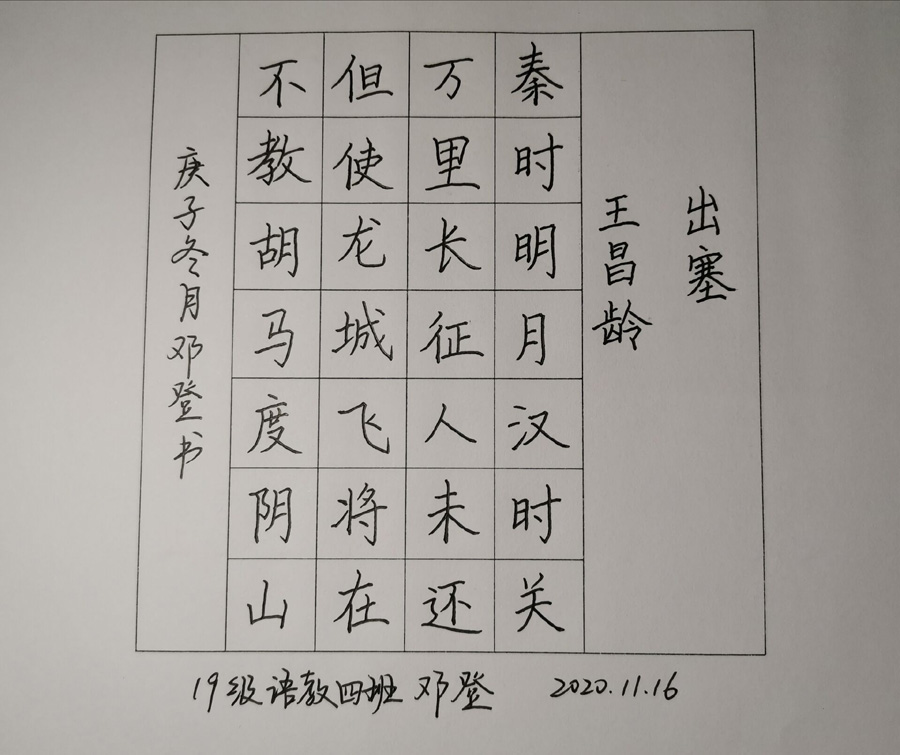 出塞
王昌龄
秦时明月汉时关
万里长征人未还
但使龙城飞将在
不教胡马度阴山
庚子冬月邓登书
19级语教四班 邓登 2020.11.16